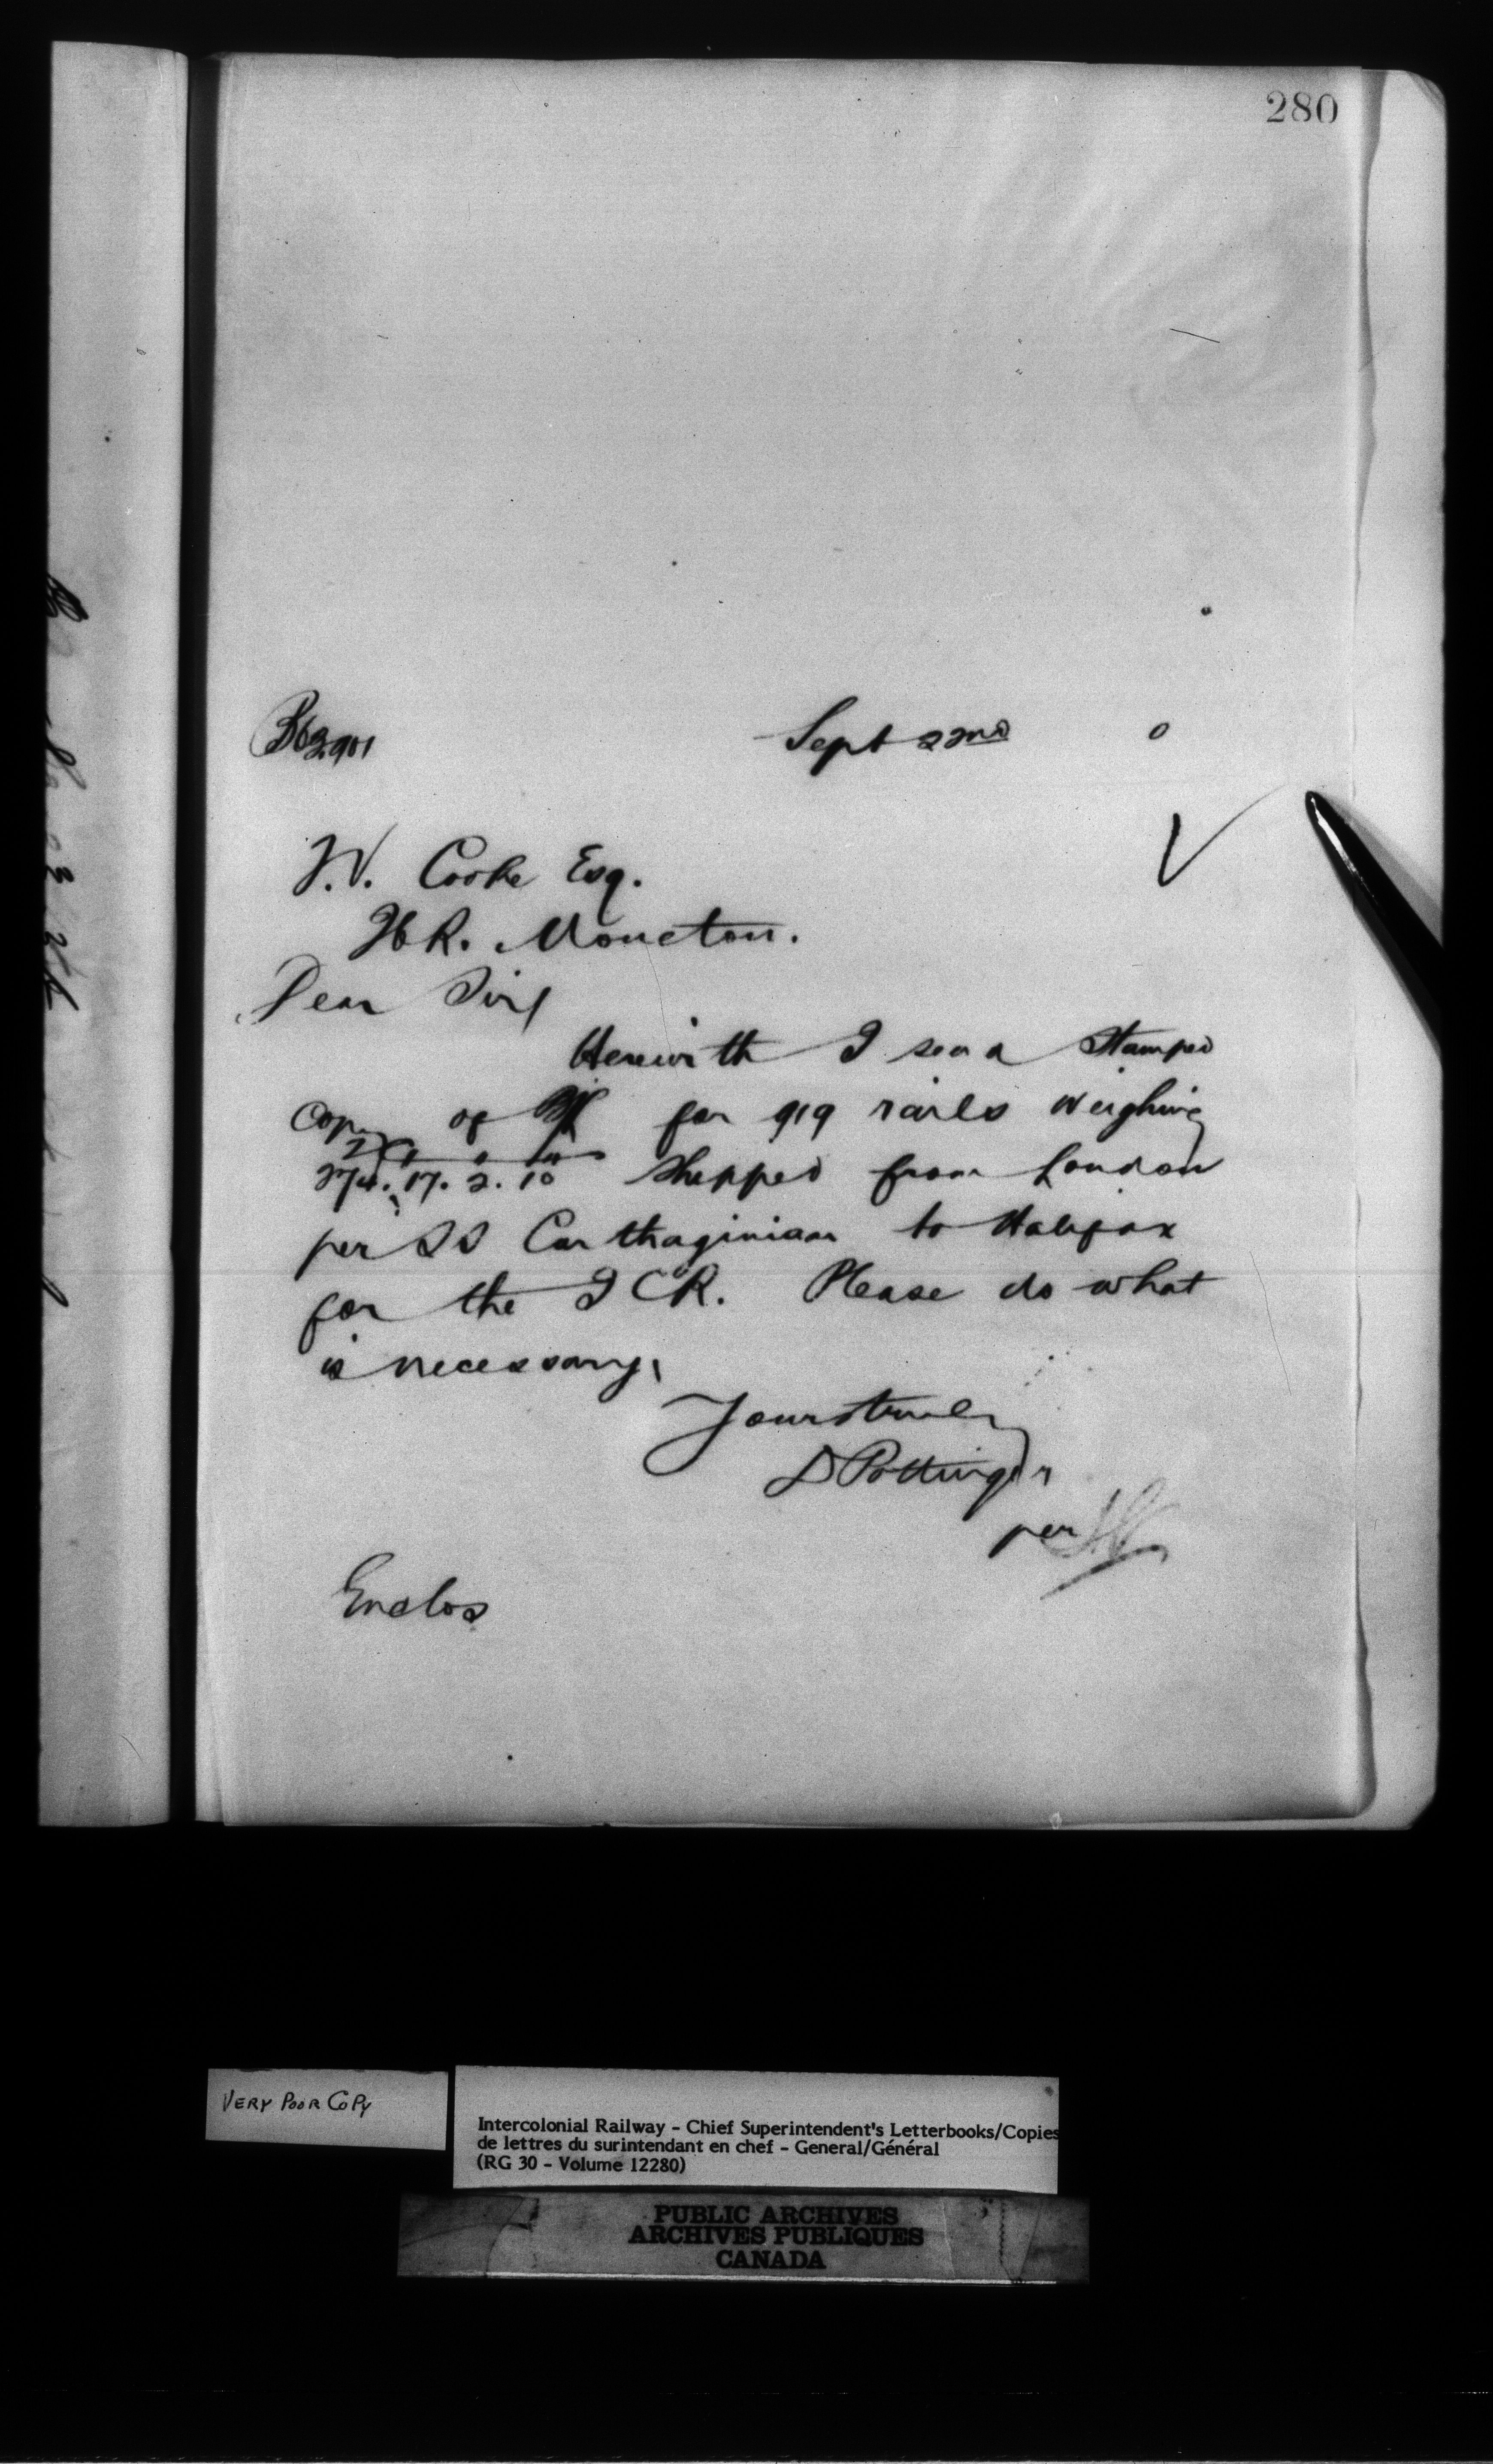 280
B62901
Sept 22nd 0
T.V. Cooke Esq.
Moncton.
Dear Sir
Herewith I send Stamped
Copy of for 919 rails weighing
274. 17. 2. 10 shipped from London
per SS Carthaginian to Halifax
for the I C R. Please do what
is necessary.
Yours truly
D Pottinger
per
Enclos
VERY POOR COPY
Intercolonial Railway - Chief Superintendent's Letterbooks/Copies
de lettres du surintendant en chef - General/Général
(RG 30 - Volume 12280)
PUBLIC ARCHIVES
ARCHIVES PUBLIQUES
CANADA